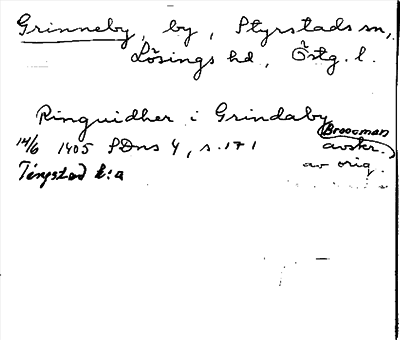 Grinneby, by, Styrstads sn,
Lösings hd, Östg. l.
Ringuidher i Grindaby
14/6 1405 SDns 4, s. 171
(Broocman
avskr.
av orig.
Tingstad k:a